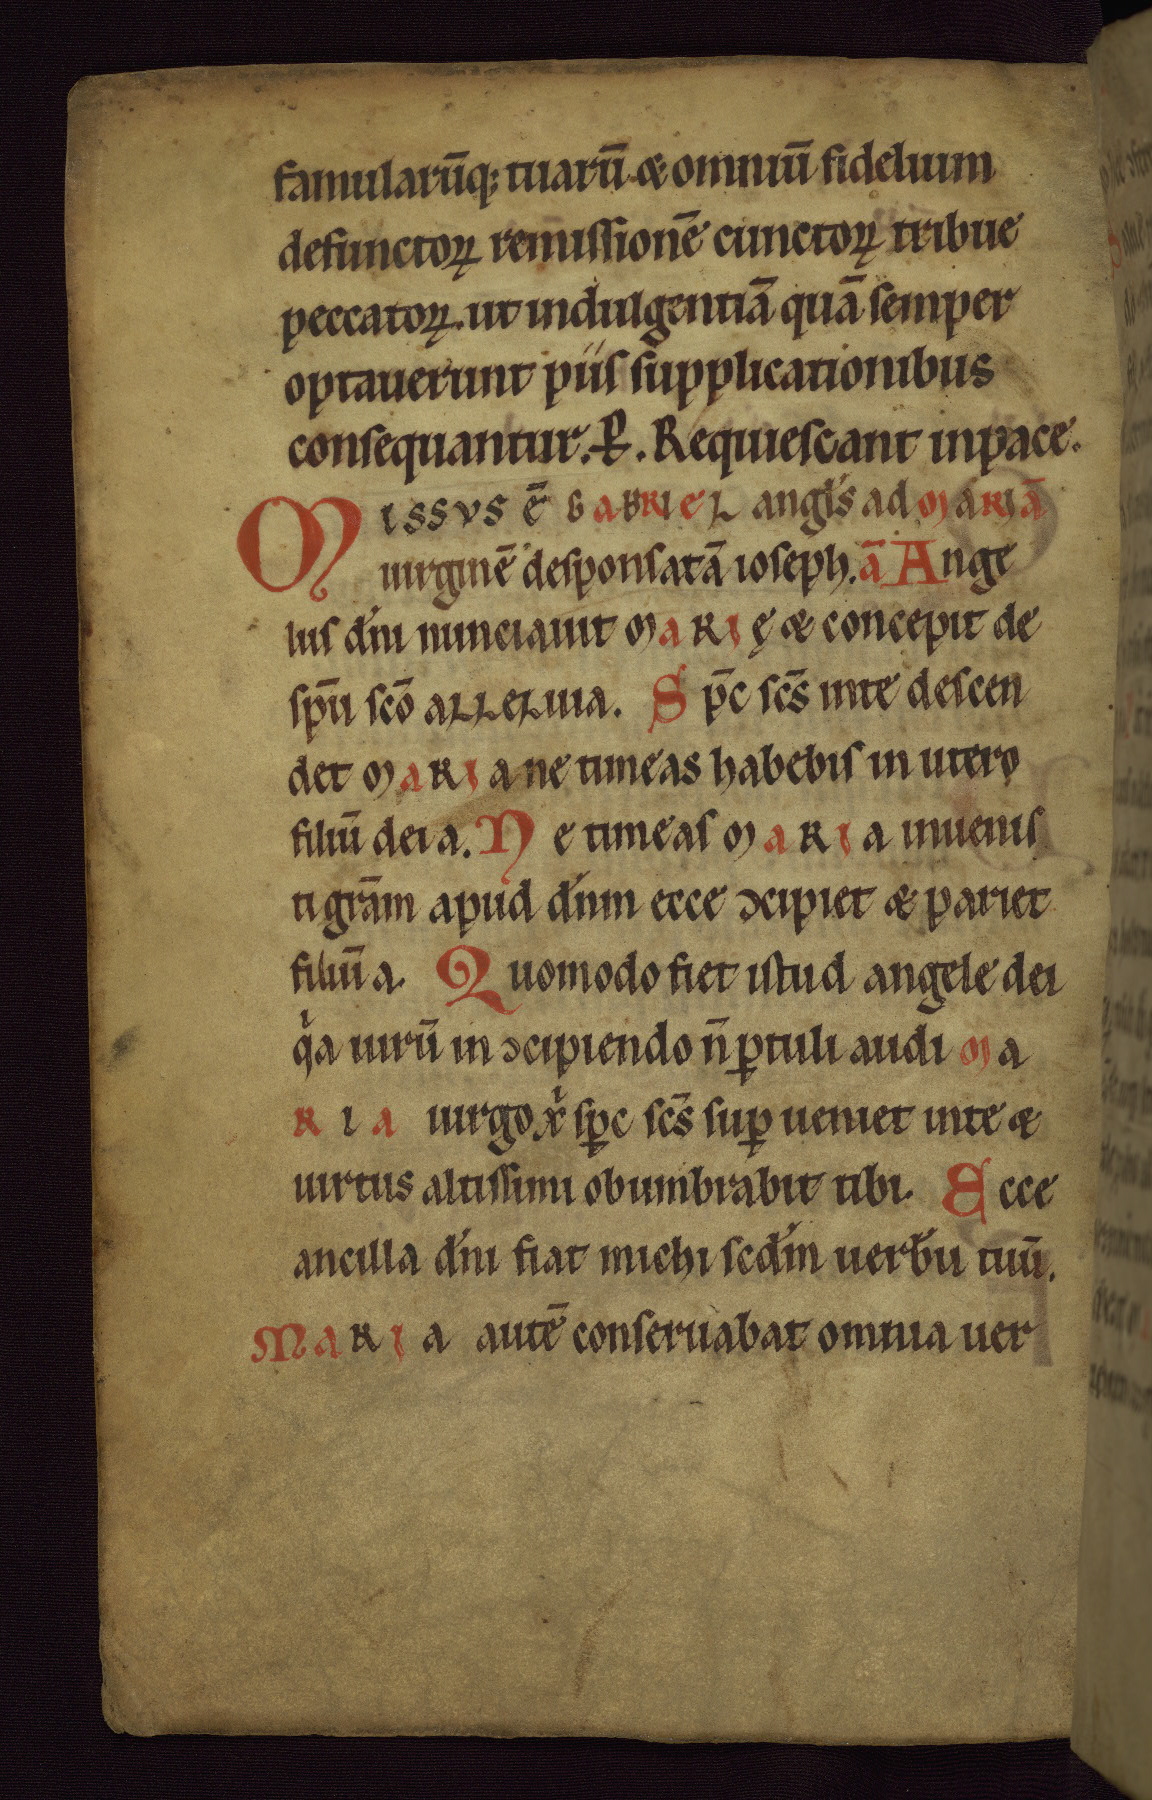 famularū q; tuarū & omniū fidelium
defunctoꝝ remissionē cunctoꝝ tribue
peccatoꝝ. ut indulgentiā quā semper
optauerunt piis supplicationibus
consequantur. P̄. Requiescant in pace.
Missvs ē Gabriel angl's ad mariā
uirginē desponsatā ioseph. ā Ange
lus dn̄i nunciauit marię & concepit de
spū scō alleluia. Sp̄c sc̄s in te descen
det maria ne timeas habebis in utero
filiū dei a. Ne timeas maria inuenis
ti grām apud dn̄m ecce ↄcipiet & pariet
filiū a. Quomodo fiet istud angele dei
qͥa uirū in ↄcipiendo n̄ ꝑtuli audi ma
ria uirgo xͥ sp̄c sc̄s suꝑ ueniet in te &
uirtus altissimi obumbrabit tibi. Ecce
ancilla dn̄i fiat michi scd'm uerbū tuū.
Maria autē conseruabat omnia uer